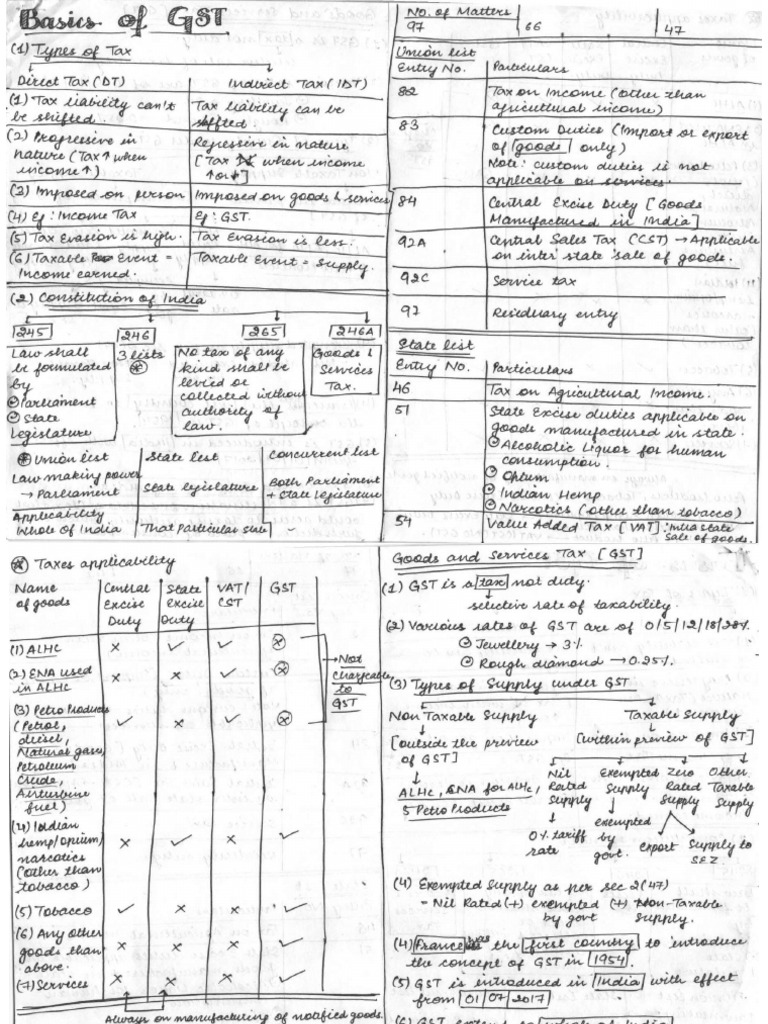 Basics of GST
(1) Types of Tax
Direct Tax (DT) Indirect Tax (IDT)
(1) Tax liability can't be shifted. Tax liability can be shifted.
(2) Progressive in nature (Tax ↑ when income ↑) Regressive in nature [Tax when income ↑ or ↓]
(3) Imposed on person Imposed on goods & services
(4) Eg: Income Tax Eg: GST.
(5) Tax Evasion is high. Tax Evasion is less.
(6) Taxable Event = Income earned. Taxable Event = Supply.
(2) Constitution of India
245 246 265 246A
Law shall be formulated by
⊙ Parliament
⊙ State Legislature
3 lists
⊛
No tax of any kind shall be levied or collected without authority of law.
Goods & Services Tax.
⊛ Union list State list Concurrent list
Law making power → Parliament State legislature Both Parliament + State Legislature
Applicability Whole of India That Particular State
No. of Matters
97 66 47
Union list
Entry No. Particulars
82 Tax on Income (other than
agricultural income)
83 Custom Duties (Import or export
of goods only)
Note: custom duties is not
applicable on services.
84 Central Excise Duty [Goods
Manufactured in India]
92A Central Sales Tax (CST) → Applicable
on inter state sale of goods.
92C Service tax
97 Residuary entry
State list
Entry No. Particulars
46 Tax on Agricultural Income.
51 State Excise duties applicable on
goods manufactured in state:
⊙ Alcoholic Liquor for human
consumption.
⊙ Opium
⊙ Indian Hemp
⊙ Narcotics (other than tobacco)
54 Value Added Tax [VAT]: Intra state
sale of goods.
⊛ Taxes applicability
Name of goods Central Excise Duty State Excise Duty VAT/CST GST
(1) ALHC × ✓ ✓ ⊗
(2) ENA used in ALHC × × ✓ ⊗
(3) Petro Products (Petrol, diesel, Natural gas, Petroleum Crude, Airturbine fuel) ✓ × ✓ ⊗
→ Not Chargeable to GST
(4) Indian hemp/opium/narcotics (other than tobacco) × ✓ × ✓
(5) Tobacco ✓ × × ✓
(6) Any other goods than above. × × × ✓
(7) Services × × × ✓
Always on manufacturing of notified goods.
Goods and Services Tax [GST]
(1) GST is a tax not duty.
selective rate of taxability.
(2) Various rates of GST are of 0/5/12/18/28%
⊙ Jewellery → 3%
⊙ Rough diamond → 0.25%
(3) Types of Supply under GST
Non Taxable Supply Taxable Supply
[outside the preview of GST] [within preview of GST]
ALHC, ENA for ALHC,
5 Petro Products
Nil Rated Supply Exempted Supply Zero Rated Supply Other Taxable Supply
0% tariff rate exempted by govt. export Supply to SEZ
(4) Exempted Supply as per sec 2(47)
= Nil Rated (+) exempted (+) Non-Taxable
by govt Supply.
(4) France was the first country to introduce
the concept of GST in 1954.
(5) GST is introduced in India with effect
from 01/07/2017